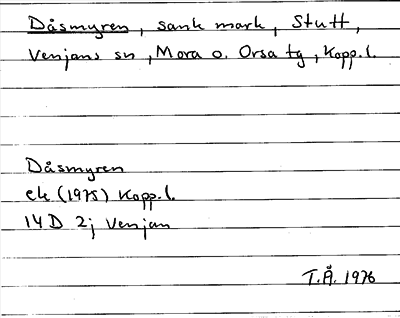 Dåsmyren, sank mark, Stutt,
Venjans sn, Mora o. Orsa tg, Kopp.l.
Dåsmyren
ek (1975) Kopp.l.
14 D 2j Venjan
T.Å. 1976